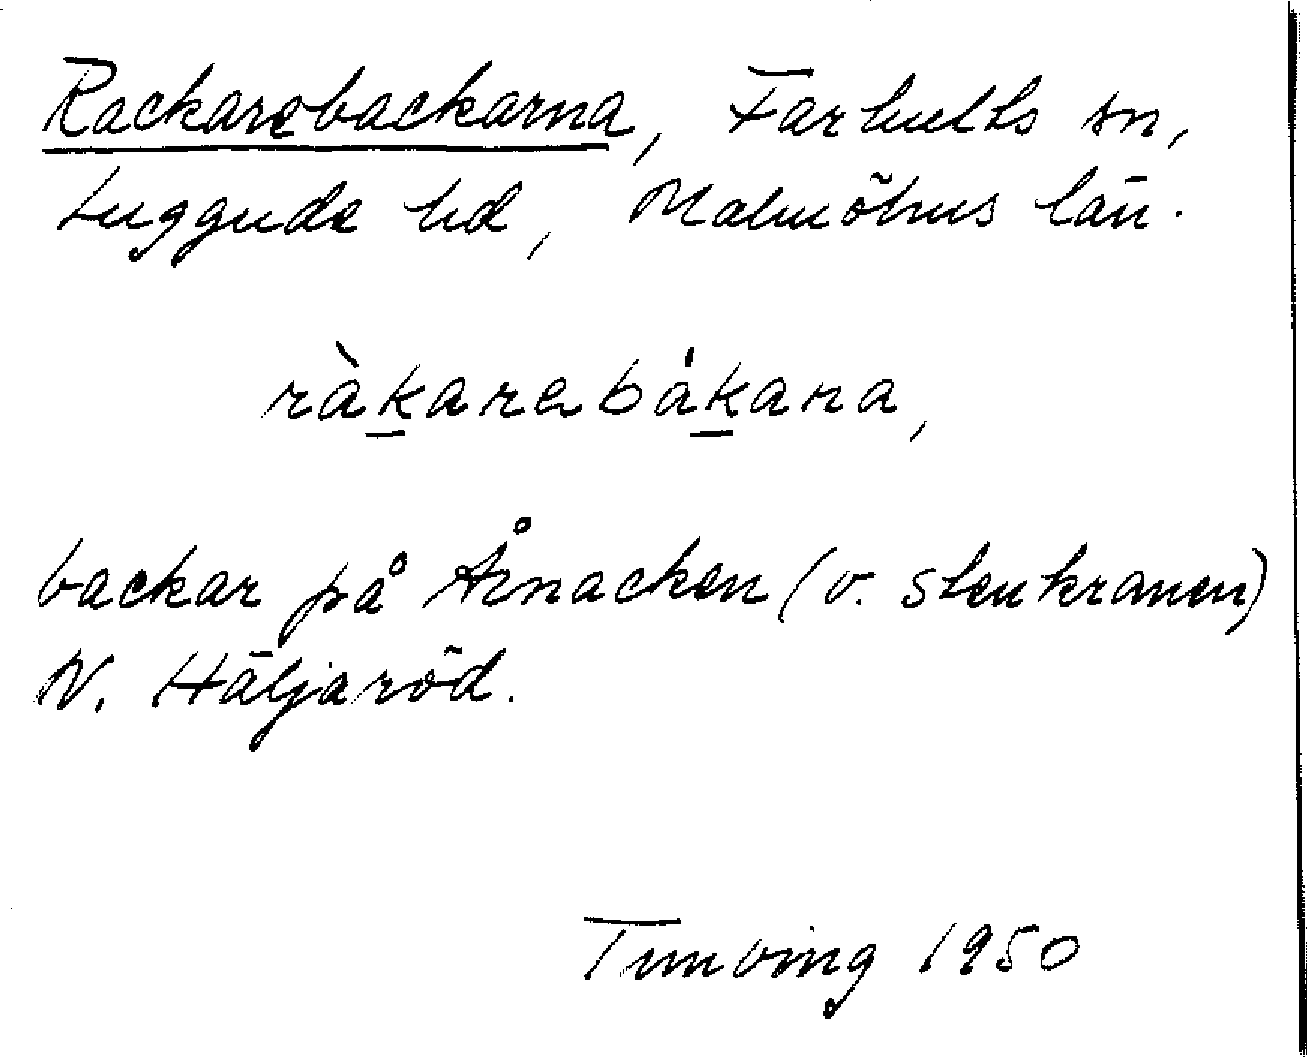 Rackarebackarna, Farhults sn,
Luggude hd, Malmöhus län.
ràkarebákana,
backar på Åsnacken (v. stenkranen)
N. Häljaröd.
Tunving 1950